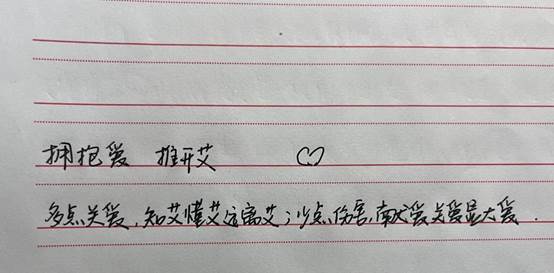 拥抱爱 推开艾 ♡
多点关爱,知艾懂艾远离艾;少点伤害,献爱显大爱.